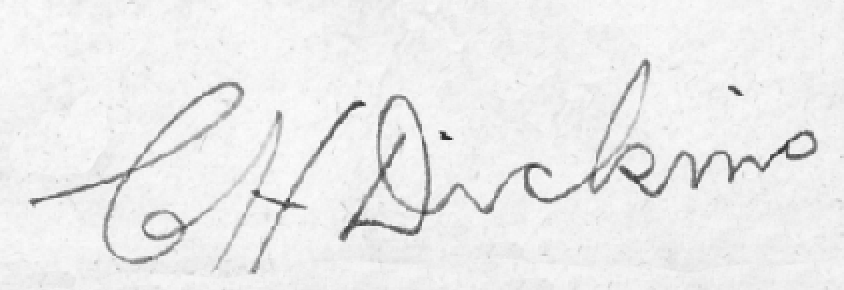 C H Dickins